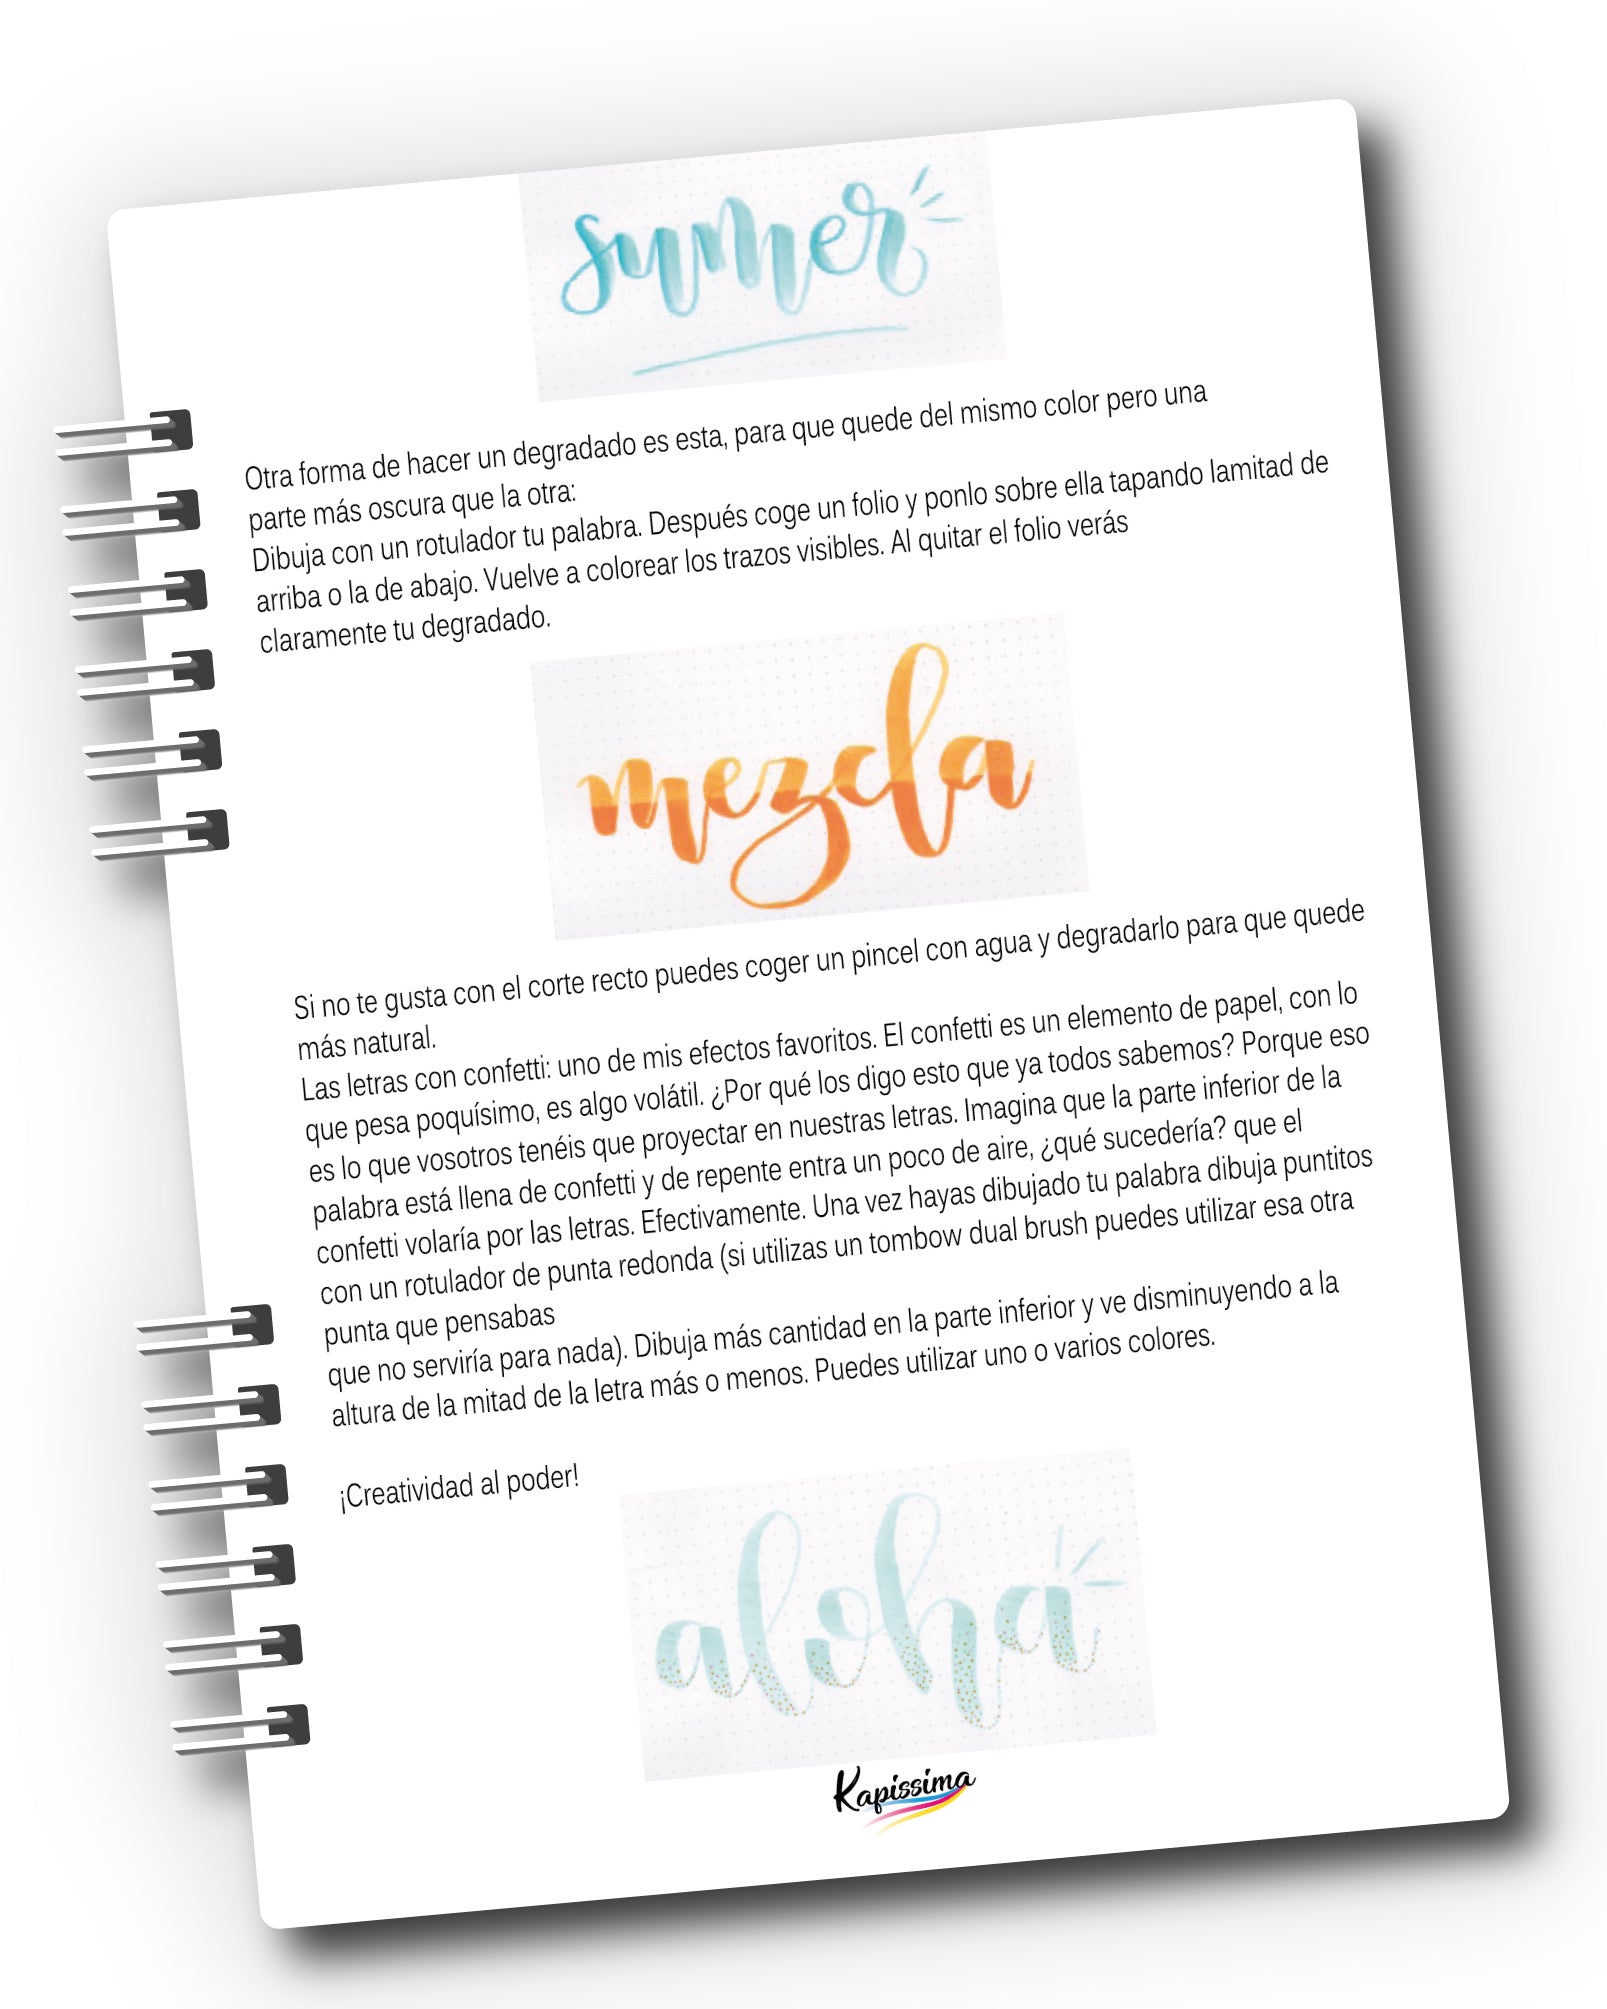 sumer
Otra forma de hacer un degradado es esta, para que quede del mismo color pero una
parte más oscura que la otra:
Dibuja con un rotulador tu palabra. Después coge un folio y ponlo sobre ella tapando lamitad de
arriba o la de abajo. Vuelve a colorear los trazos visibles. Al quitar el folio verás
claramente tu degradado.
mezcla
Si no te gusta con el corte recto puedes coger un pincel con agua y degradarlo para que quede
más natural.
Las letras con confetti: uno de mis efectos favoritos. El confetti es un elemento de papel, con lo
que pesa poquísimo, es algo volátil. ¿Por qué los digo esto que ya todos sabemos? Porque eso
es lo que vosotros tenéis que proyectar en nuestras letras. Imagina que la parte inferior de la
palabra está llena de confetti y de repente entra un poco de aire, ¿qué sucedería? que el
confetti volaría por las letras. Efectivamente. Una vez hayas dibujado tu palabra dibuja puntitos
con un rotulador de punta redonda (si utilizas un tombow dual brush puedes utilizar esa otra
punta que pensabas
que no serviría para nada). Dibuja más cantidad en la parte inferior y ve disminuyendo a la
altura de la mitad de la letra más o menos. Puedes utilizar uno o varios colores.
¡Creatividad al poder!
aloha
Kapissima